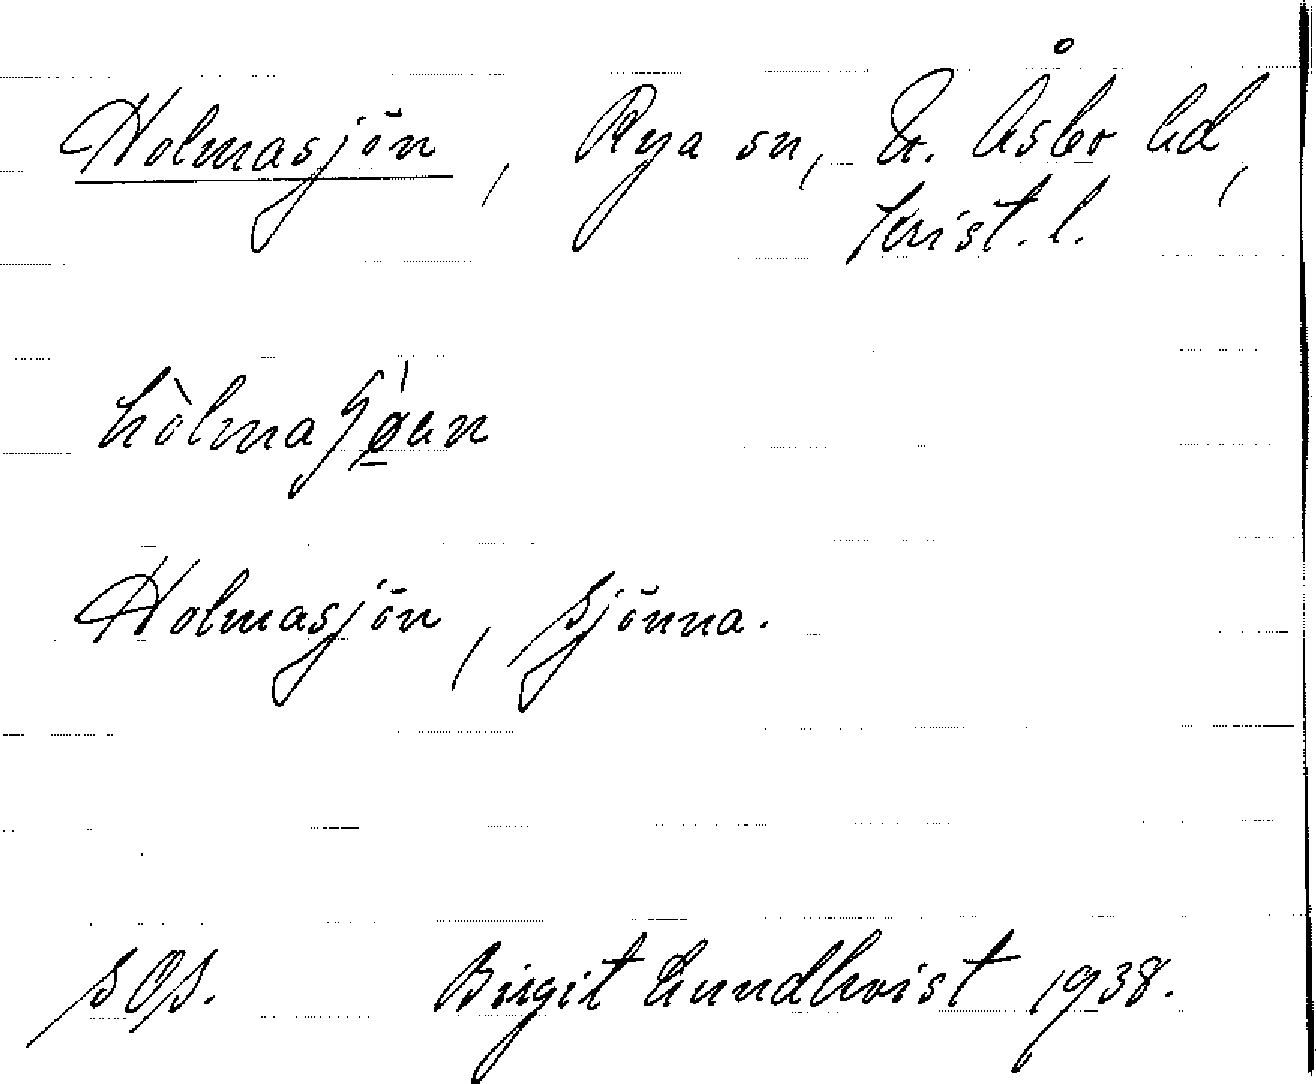 Holmasjön, Rya sn, Ö. Åsbo hd,
Krist. l.
Holmasjön, Sjönna.
SOS. Birgit Lundkvist 1938.